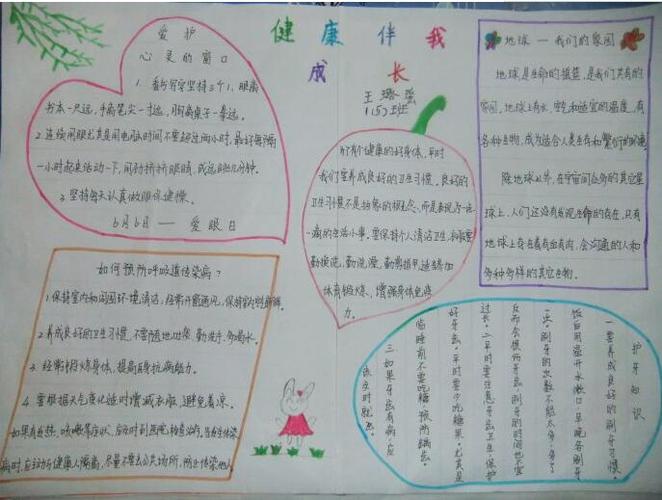 健康伴我
成长
王璐瑶
1(5)班
爱护
心灵的窗口
1. 看书写字坚持3个1,眼离
书本一尺远,手离笔尖一寸远,胸离桌子一拳远。
2. 连续用眼尤其是用电脑时间不要超过两小时,最好每隔
一小时起来活动一下,闭
眼睛,或远眺几分钟。
3. 坚持每天认真做眼保健操。
6月6日 — 爱眼日
地球 — 我们的家园
地球是生命的摇篮,是我们共有的
家园,地球上有水、空气和适宜的温度,有
各种生物,成为适合人类生存和繁衍的环境
除地球以外,在宇宙间众多的其它星
球上,人们还没有发现生命的存在,只有
地球上存在着有血有肉,会沟通的人和
多种多样的其它生物。
有个健康的好身体,平时
我们要养成良好的卫生习惯,良好的
卫生习惯不是抽象的概念,而是表现为一点
一滴的生活小事,要保持个人清洁卫生,
勤换洗,勤洗澡,勤剪指甲,适当增加
体育锻炼,增强身体免疫
力。
如何预防呼吸道传染病?
1. 保持室内和周围环境清洁,经常开窗通风,保持室内空气新鲜。
2. 养成良好的卫生习惯,不要随地吐痰,勤洗手,多喝水。
3. 经常锻炼身体,提高自身抗病能力。
4. 要根据天气变化适时增减衣服,避免着凉。
如果有发热,咳嗽等症状,应及时到医院检查治疗,当发生传染
病时,应主动与健康人隔离,尽量不要去公共场所,防止传染他人。
护牙知识
一要养成良好的刷牙习惯。
饭后用温开水漱口,早晚各刷牙
一次。刷牙的次数不能太多,多了
反而会损伤牙齿,刷牙的时间也不宜
过长。二平时要注意牙齿卫生,保护
好牙齿。平时要少吃糖果,尤其是
临睡前不要吃糖,预防龋齿。
三如果牙齿有病,应
该及时就医。